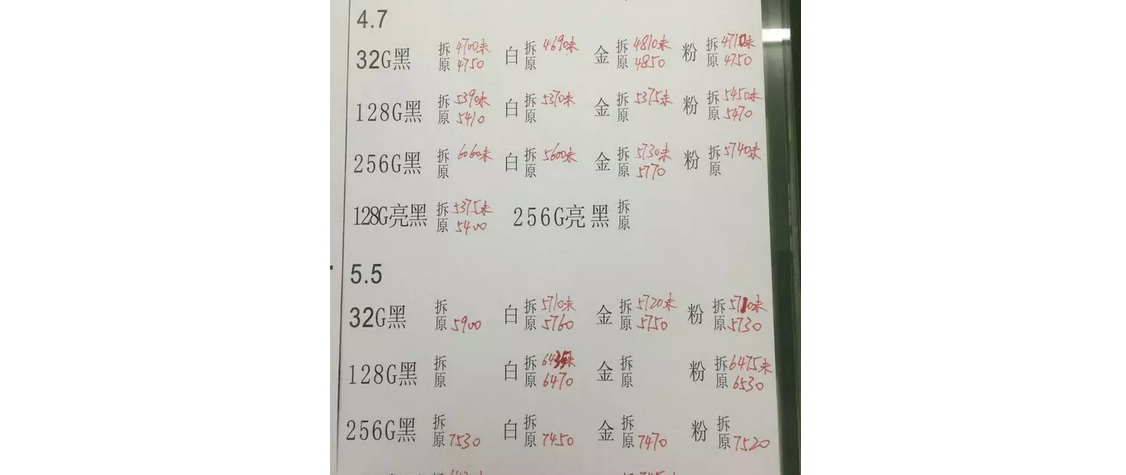 4.7
32G黑 拆 4700未 白 拆 4690未 金 拆 4810未 粉 拆 4710未
原 4750 原 原 4850 原 4750
128G黑 拆 5390未 白 拆 5370未 金 拆 5375未 粉 拆 5450未
原 5410 原 原 原 5470
256G黑 拆 6060未 白 拆 5600未 金 拆 5730未 粉 拆 5740未
原 原 原 5770 原
128G亮黑 拆 5375未 256G亮黑 拆
原 5400 原
5.5
32G黑 拆 白 拆 5710未 金 拆 5720未 粉 拆 5710未
原 5900 原 5760 原 5750 原 5730
128G黑 拆 白 拆 金 拆 粉 拆 6475未
原 原 6470 原 原 6530
256G黑 拆 白 拆 金 拆 粉 拆
原 7530 原 7450 原 7470 原 7520